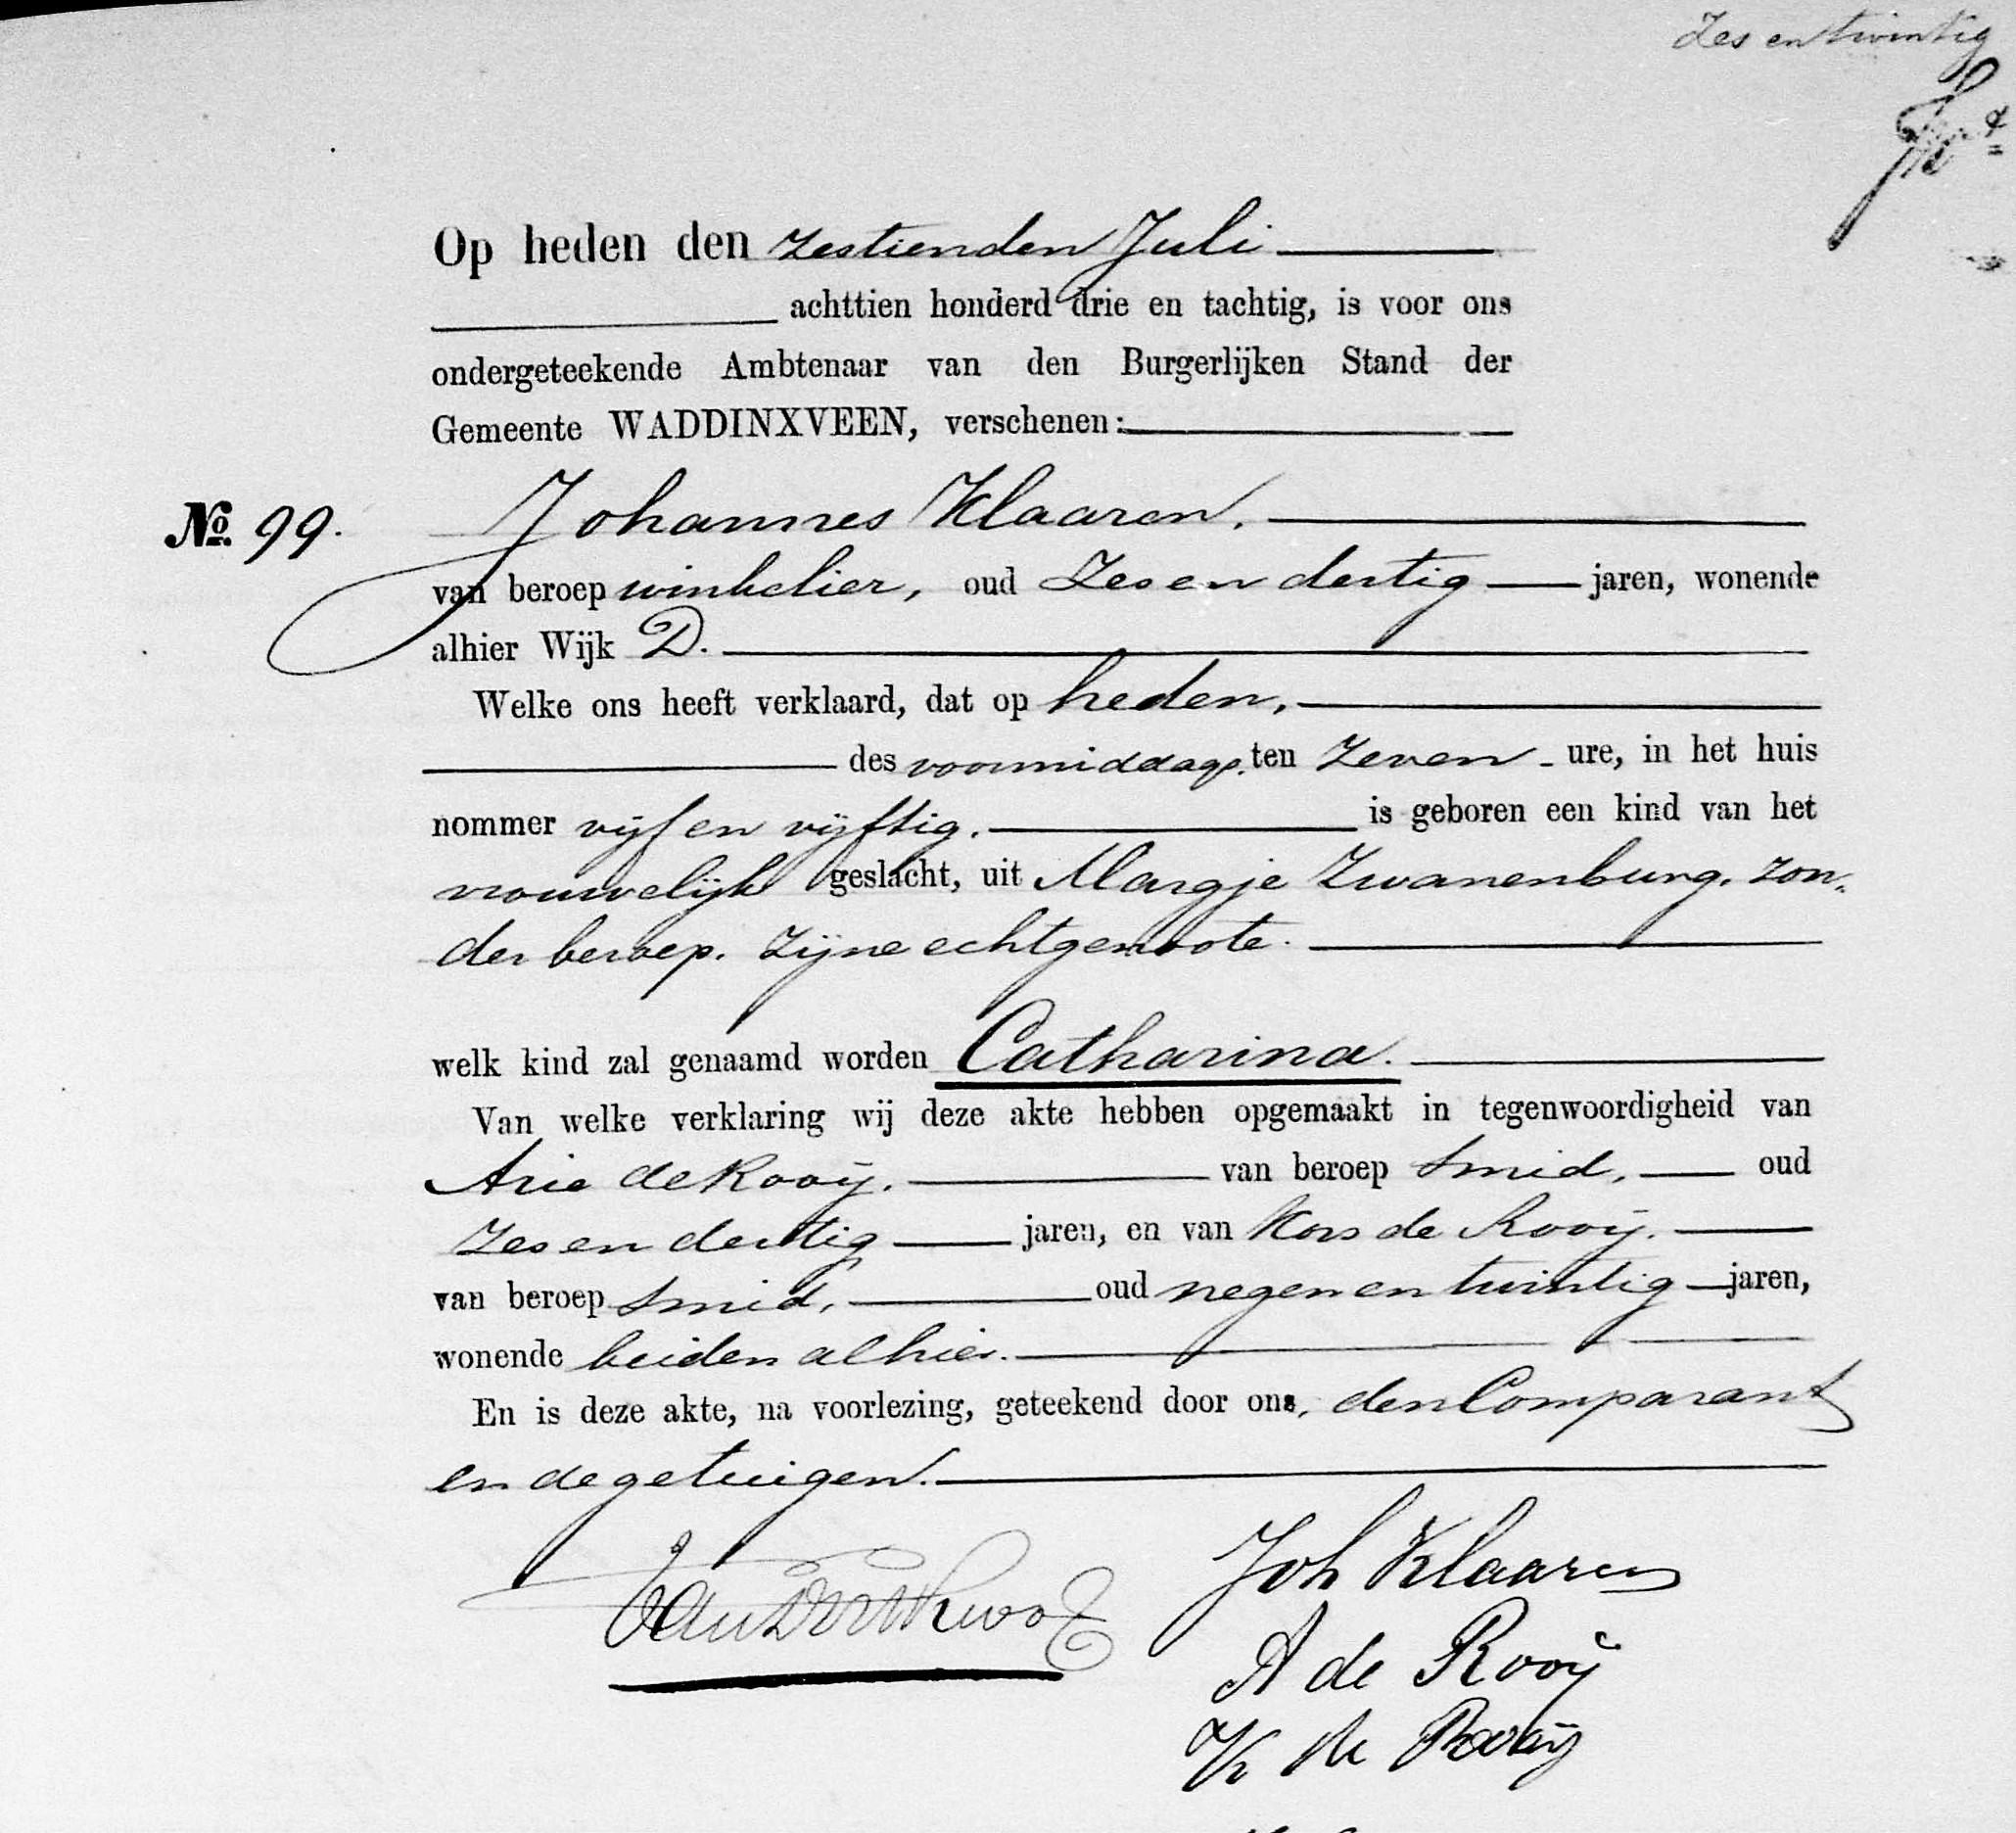 Zes en twintig
Op heden den zestienden Juli
achttien honderd drie en tachtig, is voor ons
ondergeteekende Ambtenaar van den Burgerlijken Stand der
Gemeente WADDINXVEEN, verschenen:
No. 99. Johannes Klaaren.
van beroep winkelier, oud Zes en dertig jaren, wonende
alhier Wijk D.
Welke ons heeft verklaard, dat op heden,
des voormiddags ten Zeven ure, in het huis
nommer vijf en vijftig. is geboren een kind van het
vrouwelijk geslacht, uit Margje Zwanenburg, zon„
der beroep. Zijne echtgenoote.
welk kind zal genaamd worden Catharina.
Van welke verklaring wij deze akte hebben opgemaakt in tegenwoordigheid van
Arie de Rooij. van beroep Smid, oud
Zes en dertig jaren, en van Kors de Rooij.
van beroep Smid, oud negen en twintig jaren,
wonende beiden alhier.
En is deze akte, na voorlezing, geteekend door ons, den Comparant
en de getuigen.
Joh Klaaren
A de Rooij
K de Rooij